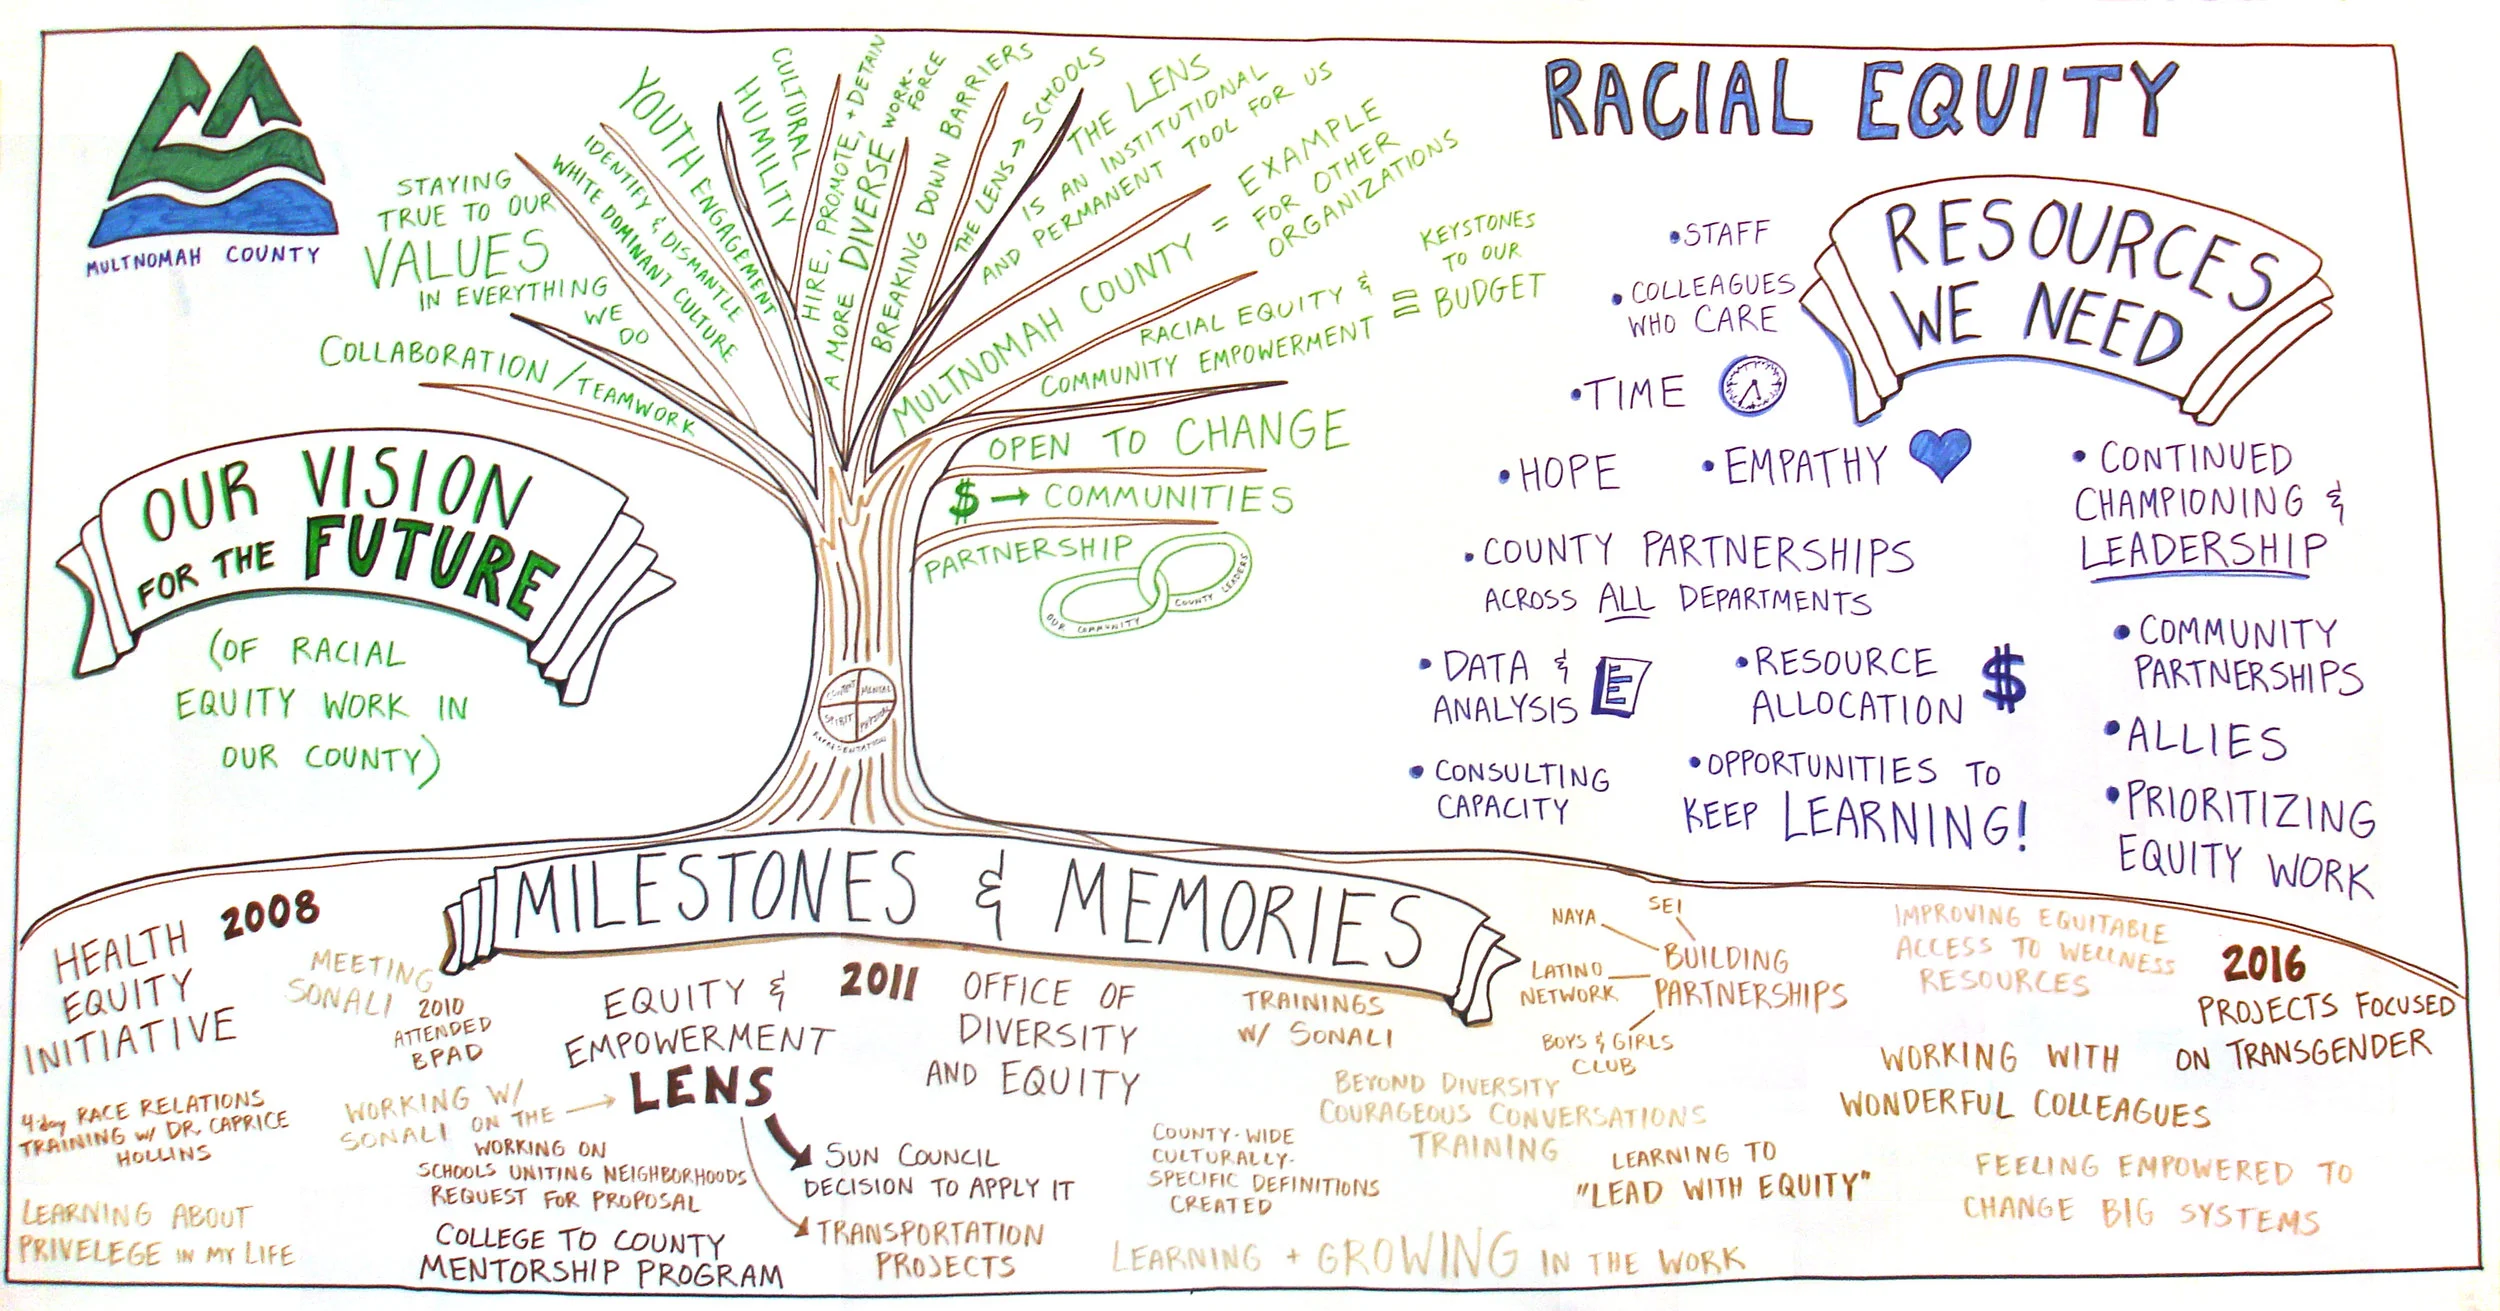 MULTNOMAH COUNTY
RACIAL EQUITY
OUR VISION
FOR THE FUTURE
(OF RACIAL
EQUITY WORK IN
OUR COUNTY)
COLLABORATION / TEAMWORK
STAYING
TRUE TO OUR
VALUES
IN EVERYTHING
WE
DO
IDENTIFY & DISMANTLE
WHITE DOMINANT CULTURE
YOUTH ENGAGEMENT
CULTURAL
HUMILITY
HIRE, PROMOTE, + DETAIN
A MORE DIVERSE WORK-
FORCE
BREAKING DOWN BARRIERS
THE LENS → SCHOOLS
THE LENS
IS AN INSTITUTIONAL
AND PERMANENT TOOL FOR US
MULTNOMAH COUNTY = EXAMPLE
FOR OTHER
ORGANIZATIONS
RACIAL EQUITY &
COMMUNITY EMPOWERMENT
=
KEYSTONES
TO OUR
BUDGET
OPEN TO CHANGE
$ → COMMUNITIES
PARTNERSHIP
OUR COMMUNITY
COUNTY LEADERS
MENTAL
SPIRIT
PHYSICAL
REPRESENTATION
RESOURCES
WE NEED
• STAFF
• COLLEAGUES
WHO CARE
• TIME
• HOPE
• EMPATHY
• COUNTY PARTNERSHIPS
ACROSS ALL DEPARTMENTS
• DATA &
ANALYSIS
• RESOURCE
ALLOCATION
$
• CONSULTING
CAPACITY
• OPPORTUNITIES TO
KEEP LEARNING!
• CONTINUED
CHAMPIONING &
LEADERSHIP
• COMMUNITY
PARTNERSHIPS
• ALLIES
• PRIORITIZING
EQUITY WORK
MILESTONES & MEMORIES
2008
HEALTH
EQUITY
INITIATIVE
MEETING
SONALI
2010
ATTENDED
BPAD
4-day RACE RELATIONS
TRAINING w/ DR. CAPRICE
HOLLINS
LEARNING ABOUT
PRIVELEGE IN MY LIFE
WORKING W/
SONALI ON THE →
EQUITY &
EMPOWERMENT
LENS
WORKING ON
SCHOOLS UNITING NEIGHBORHOODS
REQUEST FOR PROPOSAL
COLLEGE TO COUNTY
MENTORSHIP PROGRAM
SUN COUNCIL
DECISION TO APPLY IT
TRANSPORTATION
PROJECTS
2011
OFFICE OF
DIVERSITY
AND EQUITY
TRAININGS
W/ SONALI
NAYA
SEI
LATINO
NETWORK
BUILDING
PARTNERSHIPS
BOYS & GIRLS
CLUB
BEYOND DIVERSITY
COURAGEOUS CONVERSATIONS
TRAINING
COUNTY-WIDE
CULTURALLY-
SPECIFIC DEFINITIONS
CREATED
LEARNING TO
"LEAD WITH EQUITY"
LEARNING + GROWING IN THE WORK
IMPROVING EQUITABLE
ACCESS TO WELLNESS
RESOURCES
2016
PROJECTS FOCUSED
ON TRANSGENDER
WORKING WITH
WONDERFUL COLLEAGUES
FEELING EMPOWERED TO
CHANGE BIG SYSTEMS